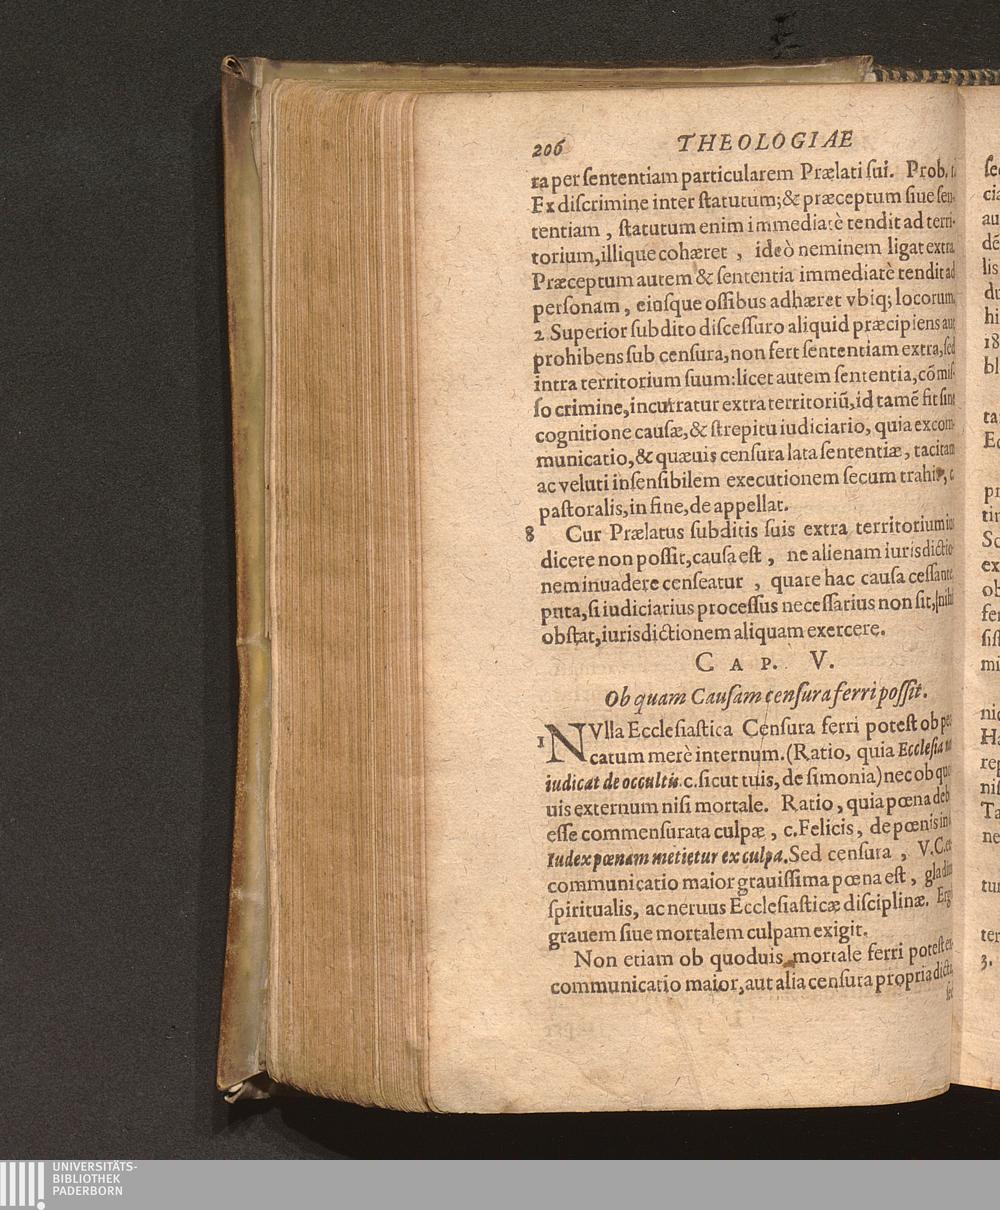 206 THEOLOGIAE
ra per ſententiam particularem Prælati ſui. Prob.
Ex diſcrimine inter ſtatutum;& præceptum ſiue ſen-
tentiam, ſtatutum enim immediatè tendit ad terri-
torium, illique cohæret, ideò neminem ligat extra.
Præceptum autem & ſententia immediatè tendit ad
perſonam, eiuſque oſſibus adhæret vbiq; locorum.
2 Superior ſubdito diſceſſuro aliquid præcipiens aut
prohibens ſub cenſura, non fert ſententiam extra, ſed
intra territorium ſuum: licet autem ſententia, cõmiſ-
ſo crimine, incurratur extra territoriũ, id tamẽ fit ſine
cognitione cauſæ, & ſtrepitu iudiciario, quia excom-
municatio, & quæuis cenſura lata ſententiæ, tacitam
ac veluti inſenſibilem executionem ſecum trahit, c.
paſtoralis, in fine, de appellat.
8 Cur Prælatus ſubditis ſuis extra territorium ius
dicere non poſſit, cauſa eſt, ne alienam iurisdictio-
nem inuadere cenſeatur, quare hac cauſa ceſſante,
puta, ſi iudiciarius proceſſus neceſſarius non ſit, nihil
obſtat, iurisdictionem aliquam exercere.
CAP. V.
Ob quam Cauſam cenſura ferri poſſit.
1 NVlla Eccleſiaſtica Cenſura ferri poteſt ob pec-
catum merè internum. (Ratio, quia Eccleſia non
iudicat de occultis. c. ſicut tuis, de ſimonia) nec ob quod-
uis externum niſi mortale. Ratio, quia pœna debet
eſſe commenſurata culpæ, c. Felicis, de pœnis in 6.
Iudex pœnam metietur ex culpa. Sed cenſura, V.C. ex-
communicatio maior grauiſſima pœna eſt, gladius
ſpiritualis, ac neruus Eccleſiaſticæ diſciplinæ. Ergo
grauem ſiue mortalem culpam exigit.
Non etiam ob quoduis mortale ferri poteſt ex-
communicatio maior, aut alia cenſura propria dicta,
ſed
UNIVERSITÄTS-
BIBLIOTHEK
PADERBORN